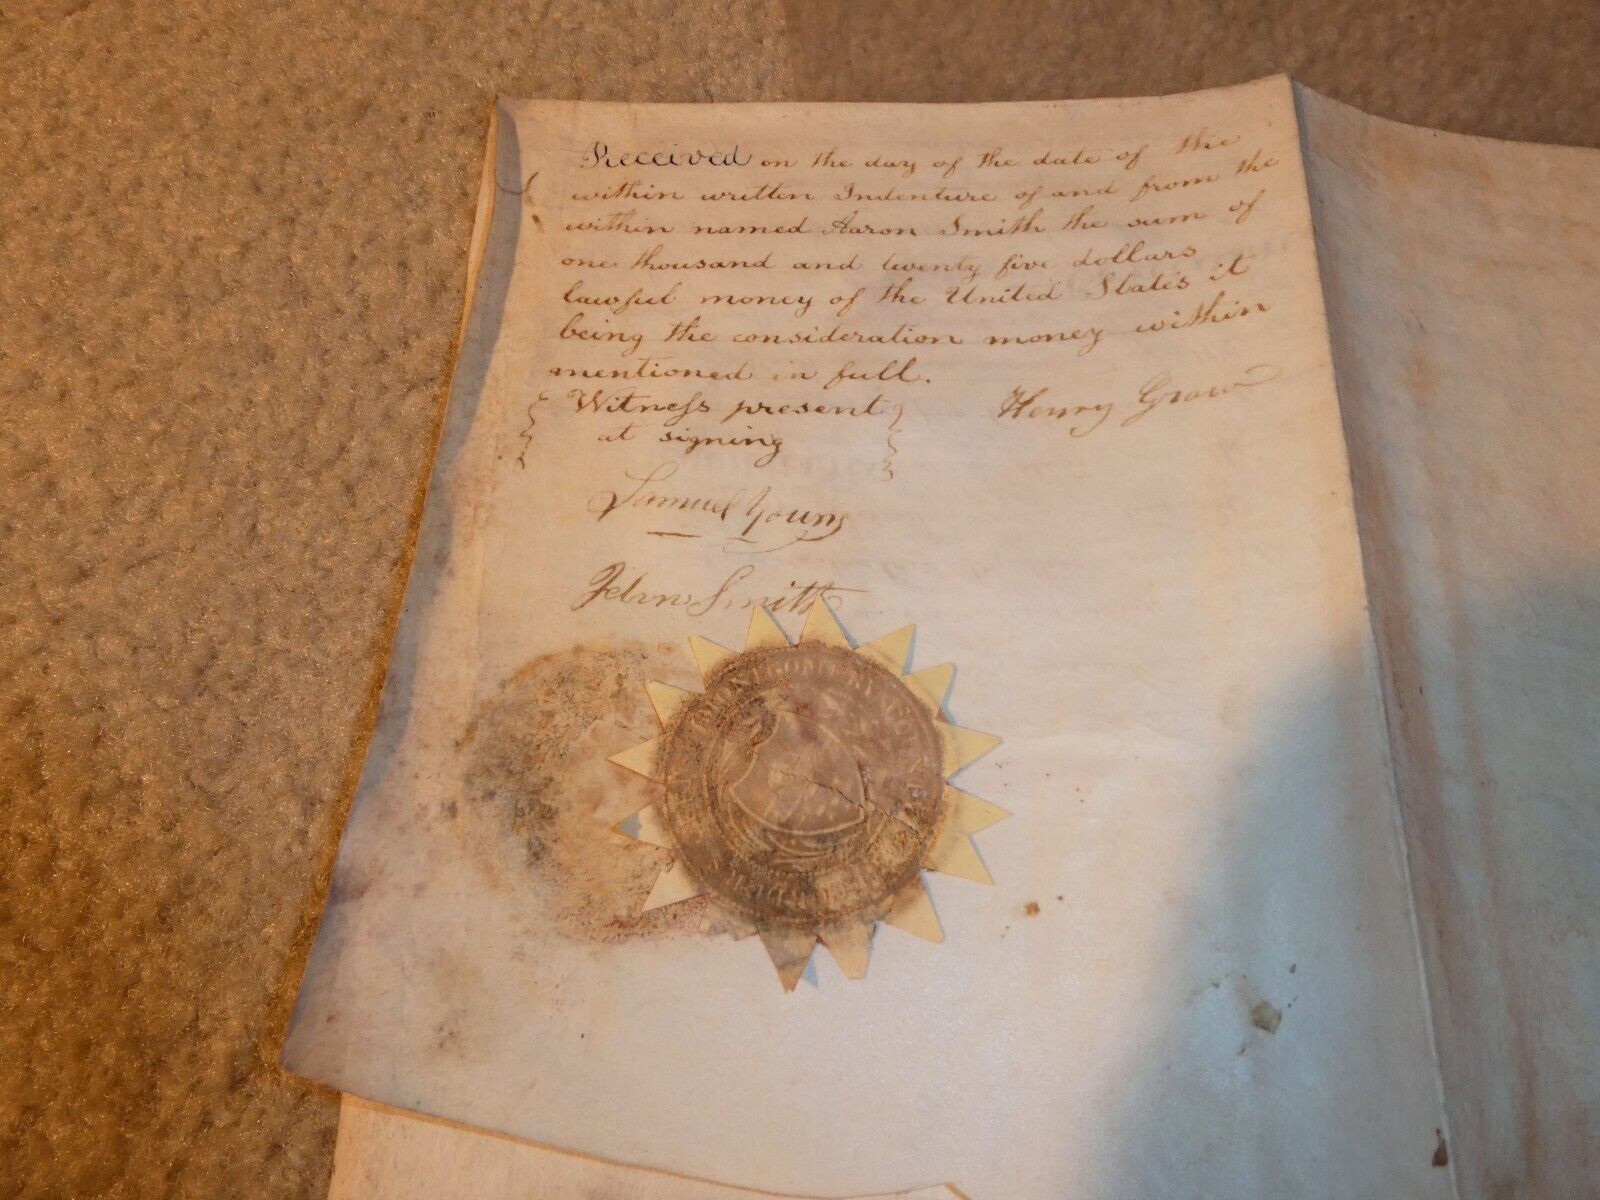 Received on the day of the date of the
within written Indenture of and from the
within named Aaron Smith the sum of
one thousand and twenty five dollars
lawful money of the United States it
being the consideration money within
mentioned in full.
Witneſs present
at signing
Henry Graw
Samuel Young
John Smith